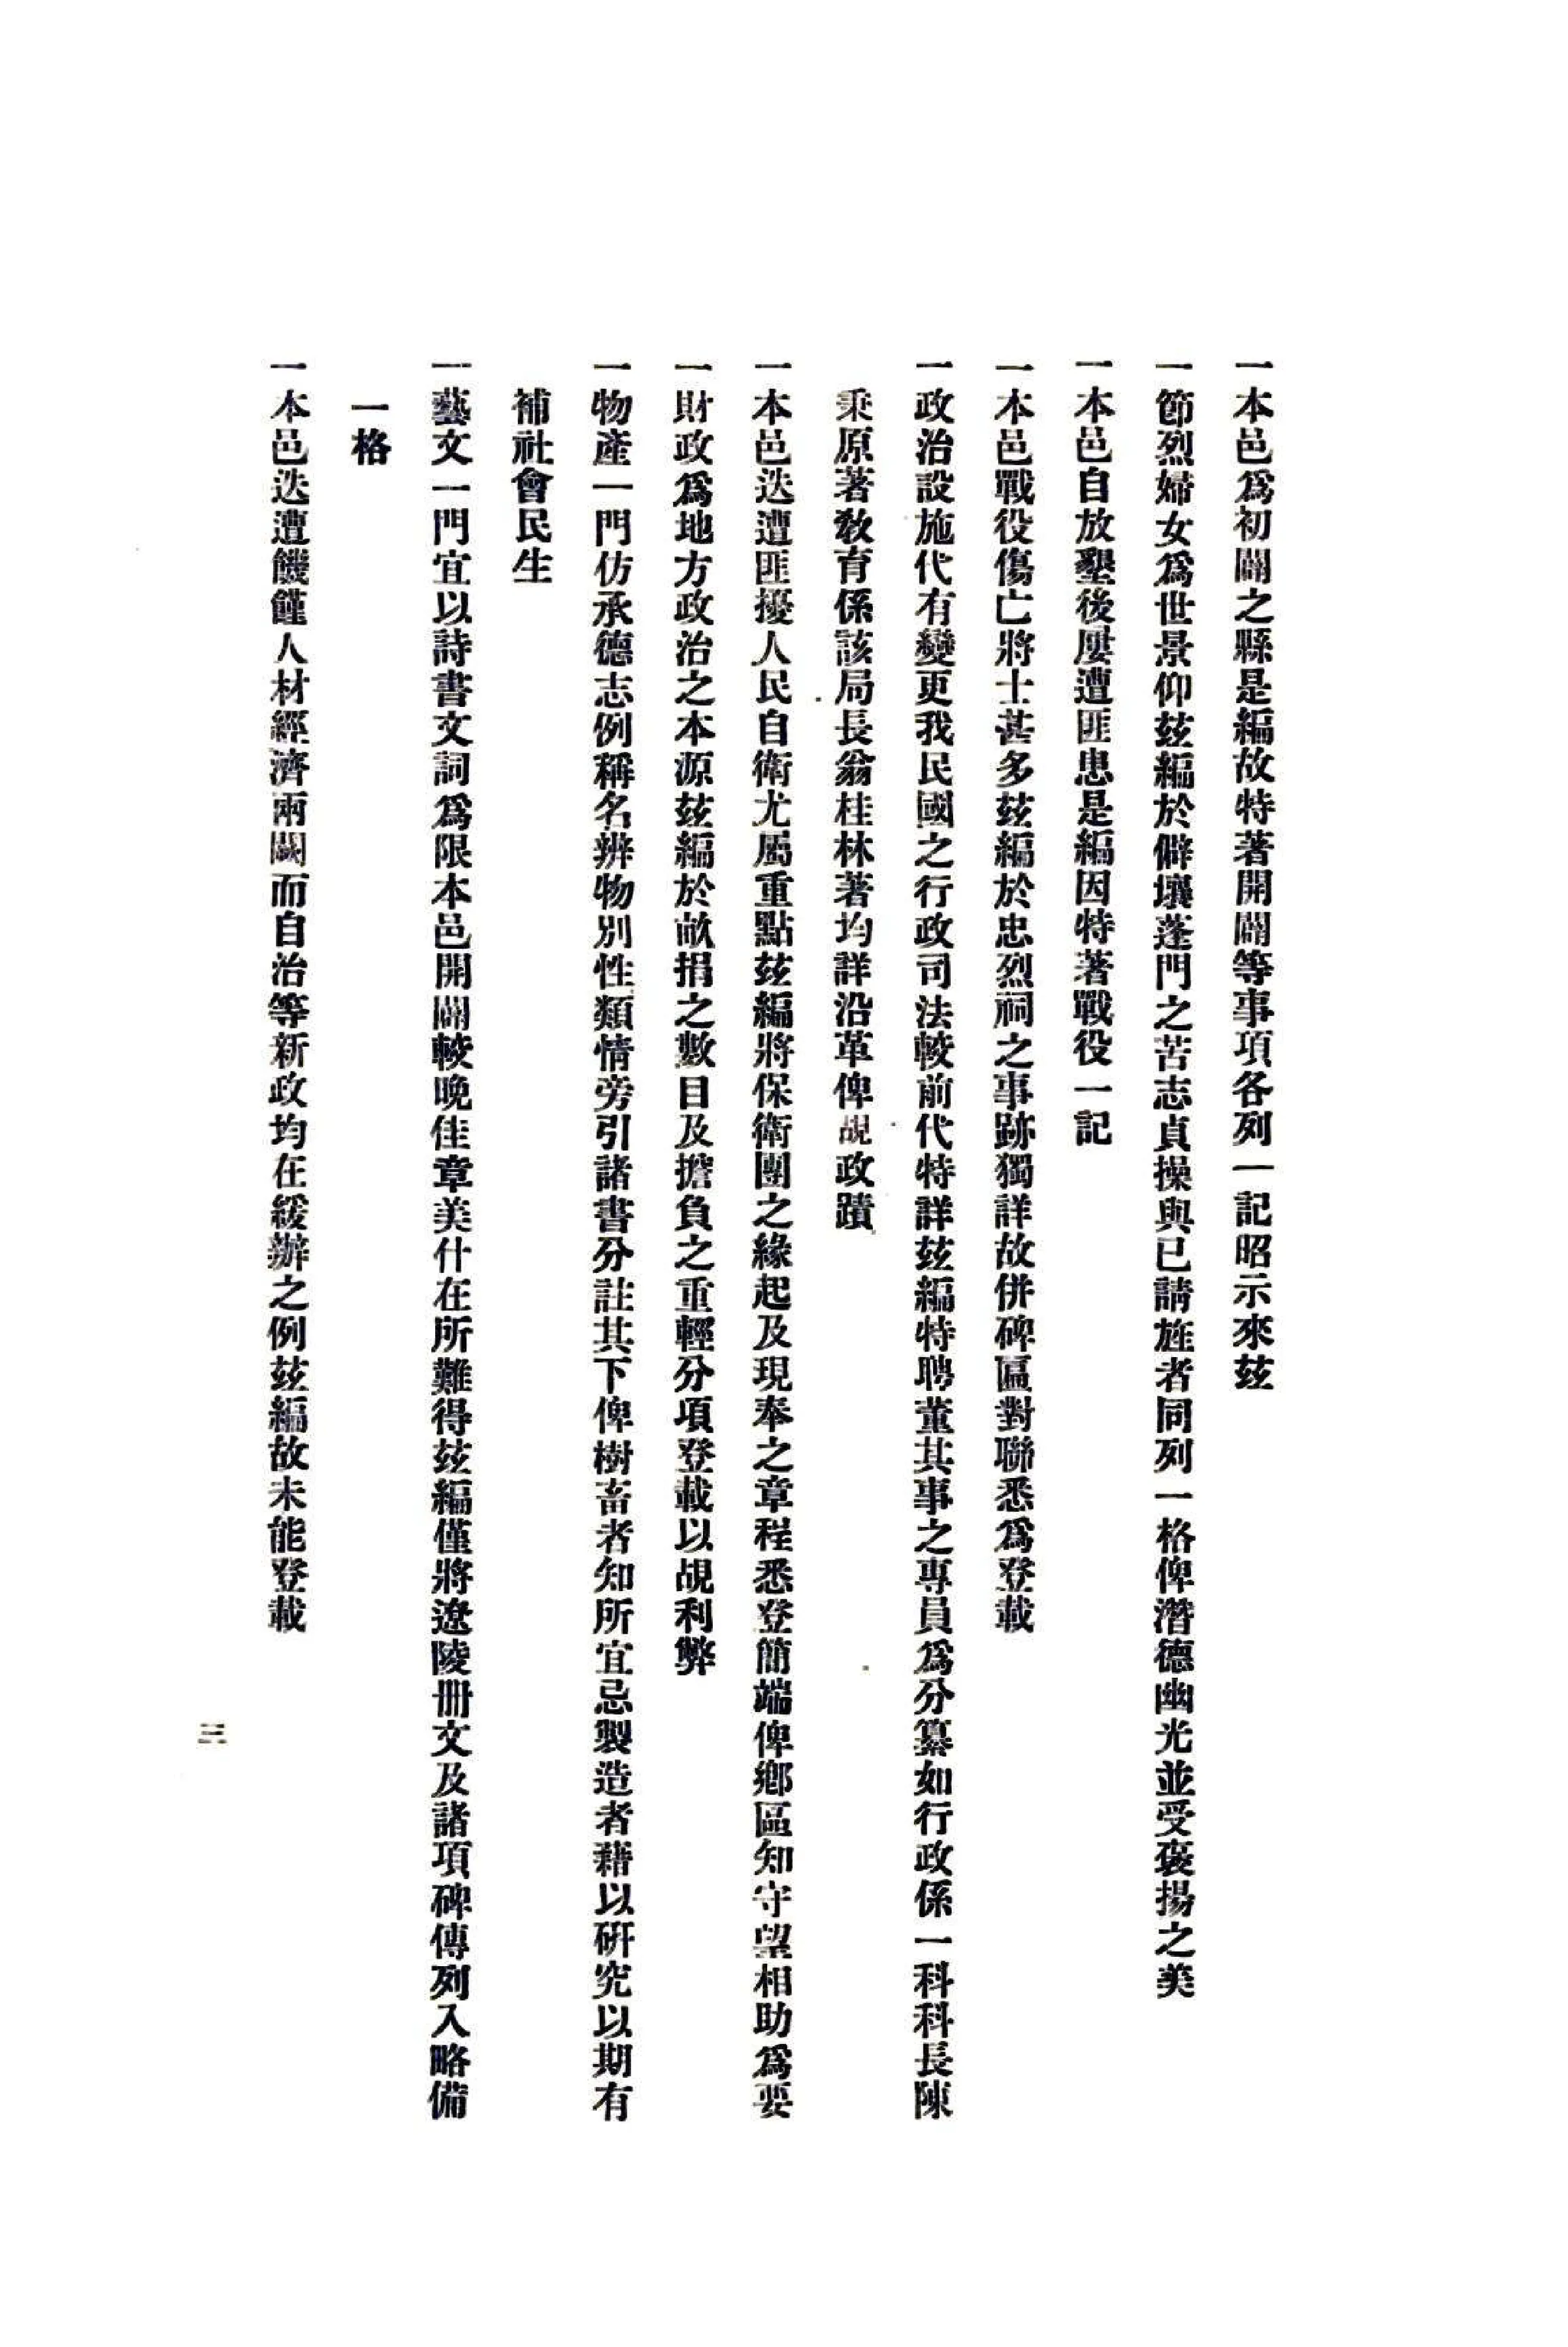 一本邑爲初闢之縣是編故特著開闢等事項各列一記昭示來玆
一節烈婦女爲世景仰玆編於僻壤蓬門之苦志貞操與已請旌者同列一格俾潛德幽光並受褒揚之美
一本邑自放墾後屢遭匪患是編因特著戰役一記
一本邑戰役傷亡將士甚多玆編於忠烈祠之事跡獨詳故併碑匾對聯悉爲登載
一政治設施代有變更我民國之行政司法較前代特詳玆編特聘董其事之專員爲分纂如行政係一科科長陳
秉原著敎育係該局長翁桂林著均詳沿革俾覘政蹟
一本邑迭遭匪擾人民自衛尤屬重點玆編將保衛團之緣起及現奉之章程悉登簡端俾鄉區知守望相助爲要
一財政爲地方政治之本源玆編於畝捐之數目及擔負之重輕分項登載以覘利弊
一物產一門仿承德志例稱名辨物別性類情旁引諸書分註其下俾樹畜者知所宜忌製造者藉以硏究以期有
補社會民生
一藝文一門宜以詩書文詞爲限本邑開闢較晚佳章美什在所難得玆編僅將遼陵冊文及諸項碑傳列入略備
一格
一本邑迭遭饑饉人材經濟兩闕而自治等新政均在緩辦之例玆編故未能登載
三